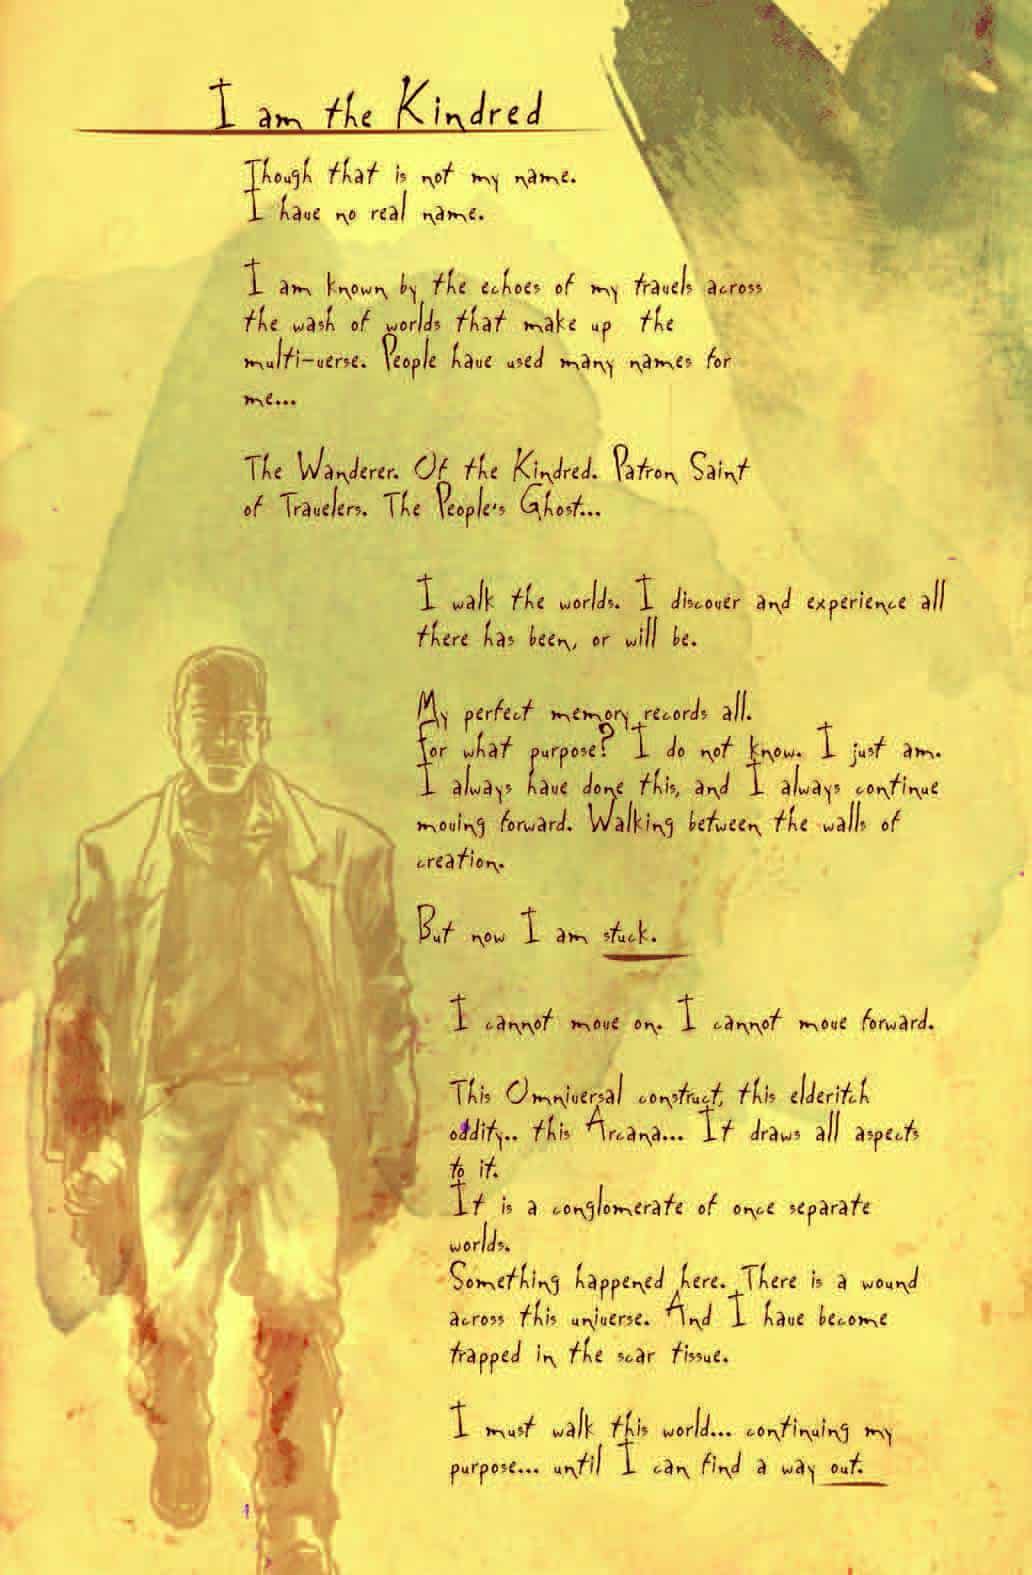 I am the Kindred
Though that is not my name.
I have no real name.
I am known by the echoes of my travels across
the wash of worlds that make up the
multi-verse. People have used many names for
me...
The Wanderer. Of the Kindred. Patron Saint
of Travelers. The People's Ghost...
I walk the worlds. I discover and experience all
there has been, or will be.
My perfect memory records all.
For what purpose? I do not know. I just am.
I always have done this, and I always continue
moving forward. Walking between the walls of
creation.
But now I am stuck.
I cannot move on. I cannot move forward.
This Omniversal construct, this elderitch
oddity.. this Arcana... It draws all aspects
to it.
It is a conglomerate of once separate
worlds.
Something happened here. There is a wound
across this universe. And I have become
trapped in the scar tissue.
I must walk this world... continuing my
purpose... until I can find a way out.